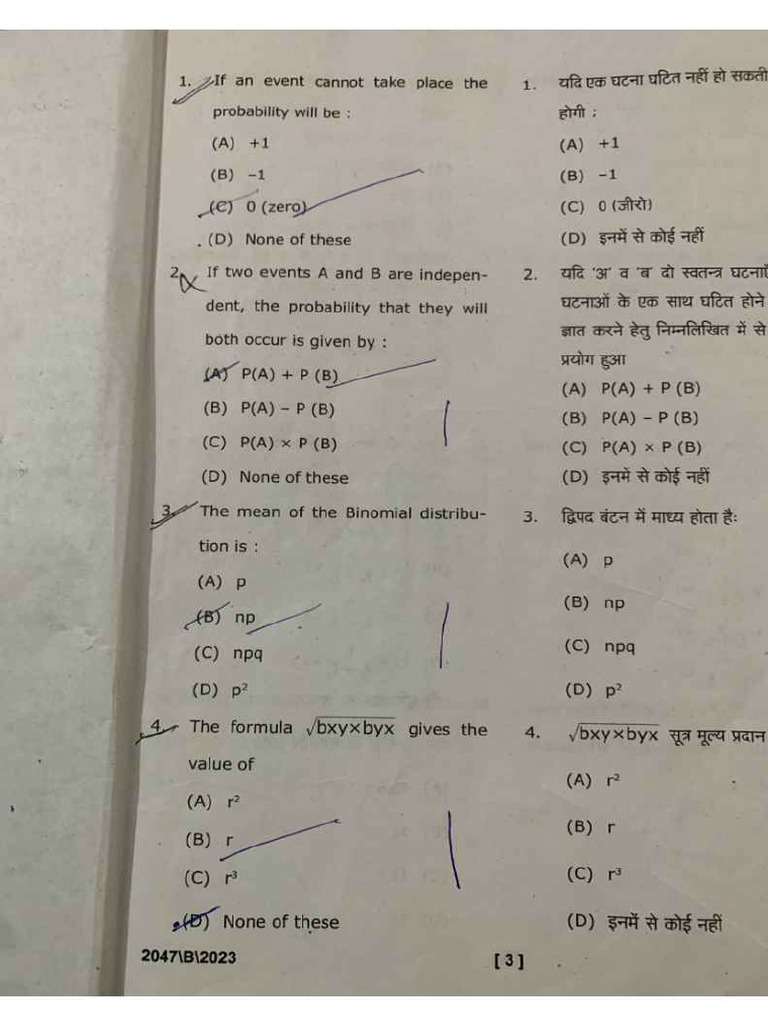 1. If an event cannot take place the
probability will be :
(A) +1
(B) -1
(C) 0 (zero)
(D) None of these
2. If two events A and B are indepen-
dent, the probability that they will
both occur is given by :
(A) P(A) + P (B)
(B) P(A) – P (B)
(C) P(A) × P (B)
(D) None of these
3. The mean of the Binomial distribu-
tion is :
(A) p
(B) np
(C) npq
(D) p²
4. The formula √bxy×byx gives the
value of
(A) r²
(B) r
(C) r³
(D) None of these
2047\B\2023
1. यदि एक घटना घटित नहीं हो सकती
होगी :
(A) +1
(B) -1
(C) 0 (जीरो)
(D) इनमें से कोई नहीं
2. यदि 'अ' व 'ब' दो स्वतन्त्र घटनाएँ
घटनाओं के एक साथ घटित होने
ज्ञात करने हेतु निम्नलिखित में से
प्रयोग हुआ
(A) P(A) + P (B)
(B) P(A) – P (B)
(C) P(A) × P (B)
(D) इनमें से कोई नहीं
3. द्विपद बंटन में माध्य होता हैः
(A) p
(B) np
(C) npq
(D) p²
4. √bxy×byx सूत्र मूल्य प्रदान
(A) r²
(B) r
(C) r³
(D) इनमें से कोई नहीं
[ 3 ]